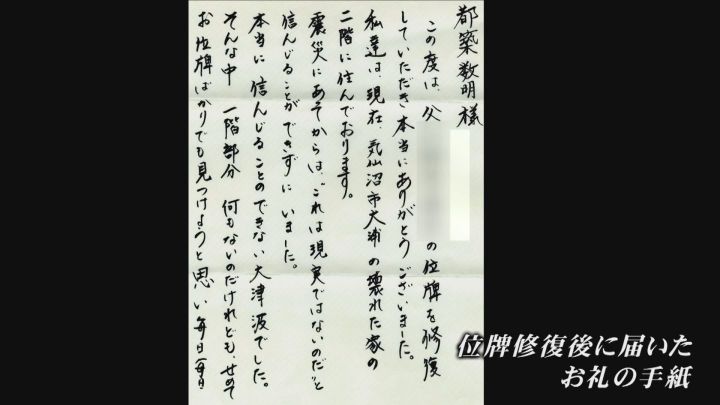 都築数明様
この度は、父
の位牌を修復
していただき本当にありがとうございました。
私達は、現在、気仙沼市大浦の壊れた家の
二階に住んでおります。
震災にあってからは、"これは現実ではないのだ"と
信んじることができずにいました。
本当に信んじることのできない大津波でした。
そんな中 一階部分 何もないのだけれども、せめて
お位牌ばかりでも見つけようと思い毎日毎日
位牌修復後に届いた
お礼の手紙